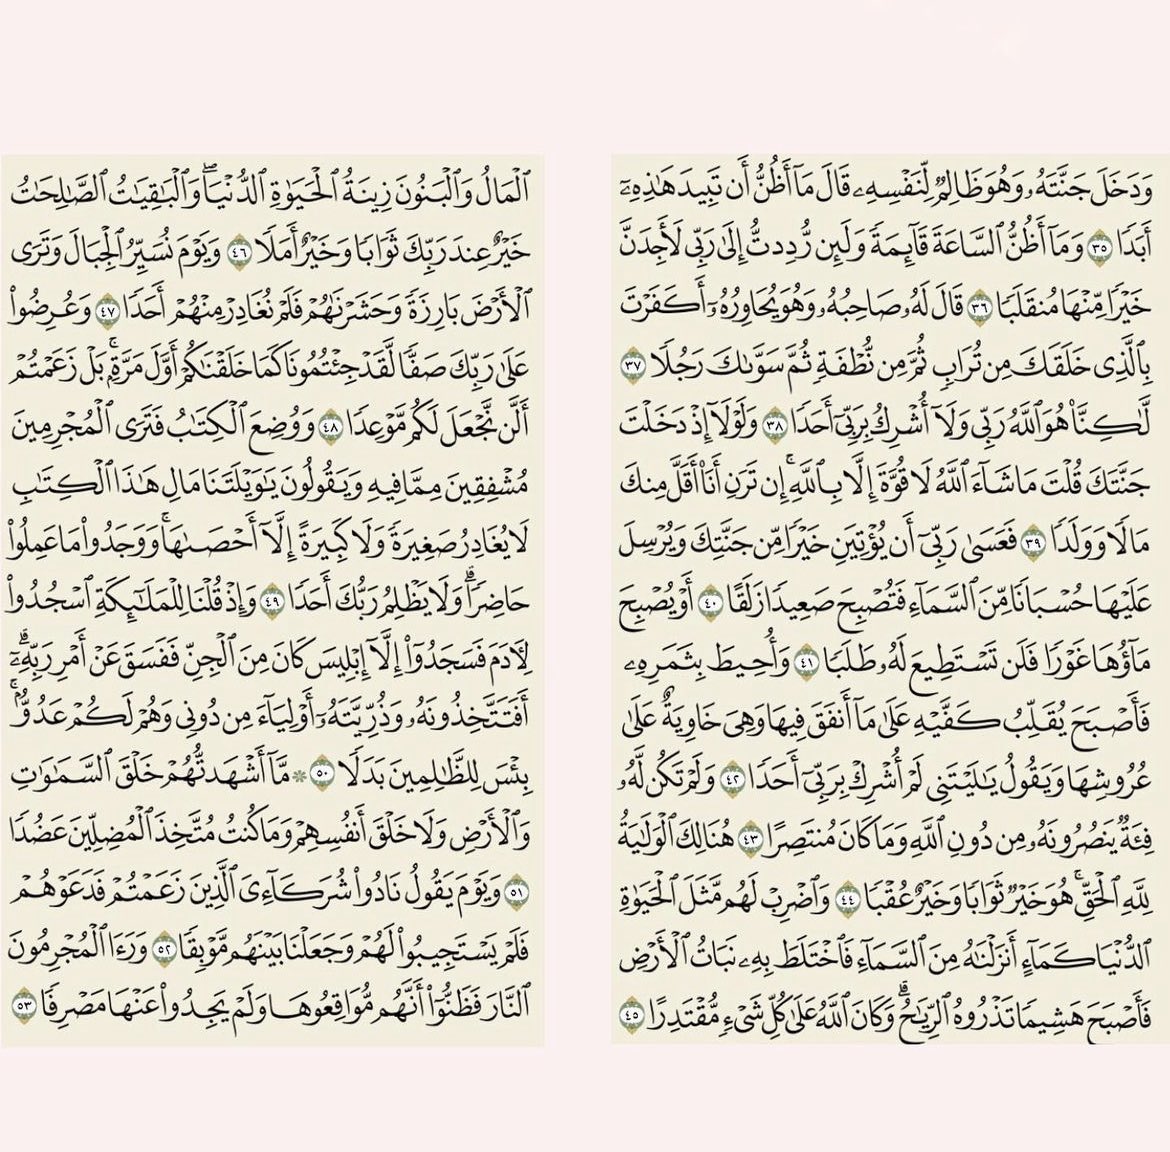 وَدَخَلَ جَنَّتَهُۥ وَهُوَ ظَالِمٌ لِّنَفْسِهِۦ قَالَ مَآ أَظُنُّ أَن تَبِيدَ هَٰذِهِۦٓ
أَبَدًا ٣٥ وَمَآ أَظُنُّ ٱلسَّاعَةَ قَآئِمَةً وَلَئِن رُّدِدتُّ إِلَىٰ رَبِّى لَأَجِدَنَّ
خَيْرًا مِّنْهَا مُنقَلَبًا ٣٦ قَالَ لَهُۥ صَاحِبُهُۥ وَهُوَ يُحَاوِرُهُۥٓ أَكَفَرْتَ
بِٱلَّذِى خَلَقَكَ مِن تُرَابٍ ثُمَّ مِن نُّطْفَةٍ ثُمَّ سَوَّىٰكَ رَجُلًا ٣٧
لَّٰكِنَّا۠ هُوَ ٱللَّهُ رَبِّى وَلَآ أُشْرِكُ بِرَبِّىٓ أَحَدًا ٣٨ وَلَوْلَآ إِذْ دَخَلْتَ
جَنَّتَكَ قُلْتَ مَا شَآءَ ٱللَّهُ لَا قُوَّةَ إِلَّا بِٱللَّهِۚ إِن تَرَنِ أَنَا۠ أَقَلَّ مِنكَ
مَالًا وَوَلَدًا ٣٩ فَعَسَىٰ رَبِّىٓ أَن يُؤْتِيَنِ خَيْرًا مِّن جَنَّتِكَ وَيُرْسِلَ
عَلَيْهَا حُسْبَانًا مِّنَ ٱلسَّمَآءِ فَتُصْبِحَ صَعِيدًا زَلَقًا ٤٠ أَوْ يُصْبِحَ
مَآؤُهَا غَوْرًا فَلَن تَسْتَطِيعَ لَهُۥ طَلَبًا ٤١ وَأُحِيطَ بِثَمَرِهِۦ
فَأَصْبَحَ يُقَلِّبُ كَفَّيْهِ عَلَىٰ مَآ أَنفَقَ فِيهَا وَهِىَ خَاوِيَةٌ عَلَىٰ
عُرُوشِهَا وَيَقُولُ يَٰلَيْتَنِى لَمْ أُشْرِكْ بِرَبِّىٓ أَحَدًا ٤٢ وَلَمْ تَكُن لَّهُۥ
فِئَةٌ يَنصُرُونَهُۥ مِن دُونِ ٱللَّهِ وَمَا كَانَ مُنتَصِرًا ٤٣ هُنَالِكَ ٱلْوَلَٰيَةُ
لِلَّهِ ٱلْحَقِّۚ هُوَ خَيْرٌ ثَوَابًا وَخَيْرٌ عُقْبًا ٤٤ وَٱضْرِبْ لَهُم مَّثَلَ ٱلْحَيَوٰةِ
ٱلدُّنْيَا كَمَآءٍ أَنزَلْنَٰهُ مِنَ ٱلسَّمَآءِ فَٱخْتَلَطَ بِهِۦ نَبَاتُ ٱلْأَرْضِ
فَأَصْبَحَ هَشِيمًا تَذْرُوهُ ٱلرِّيَٰحُۗ وَكَانَ ٱللَّهُ عَلَىٰ كُلِّ شَىْءٍ مُّقْتَدِرًا ٤٥
ٱلْمَالُ وَٱلْبَنُونَ زِينَةُ ٱلْحَيَوٰةِ ٱلدُّنْيَاۖ وَٱلْبَٰقِيَٰتُ ٱلصَّٰلِحَٰتُ
خَيْرٌ عِندَ رَبِّكَ ثَوَابًا وَخَيْرٌ أَمَلًا ٤٦ وَيَوْمَ نُسَيِّرُ ٱلْجِبَالَ وَتَرَى
ٱلْأَرْضَ بَارِزَةً وَحَشَرْنَٰهُمْ فَلَمْ نُغَادِرْ مِنْهُمْ أَحَدًا ٤٧ وَعُرِضُوا۟
عَلَىٰ رَبِّكَ صَفًّا لَّقَدْ جِئْتُمُونَا كَمَا خَلَقْنَٰكُمْ أَوَّلَ مَرَّةٍۭۚ بَلْ زَعَمْتُمْ
أَلَّن نَّجْعَلَ لَكُم مَّوْعِدًا ٤٨ وَوُضِعَ ٱلْكِتَٰبُ فَتَرَى ٱلْمُجْرِمِينَ
مُشْفِقِينَ مِمَّا فِيهِ وَيَقُولُونَ يَٰوَيْلَتَنَا مَالِ هَٰذَا ٱلْكِتَٰبِ
لَا يُغَادِرُ صَغِيرَةً وَلَا كَبِيرَةً إِلَّآ أَحْصَىٰهَاۚ وَوَجَدُوا۟ مَا عَمِلُوا۟
حَاضِرًاۗ وَلَا يَظْلِمُ رَبُّكَ أَحَدًا ٤٩ وَإِذْ قُلْنَا لِلْمَلَٰٓئِكَةِ ٱسْجُدُوا۟
لِءَادَمَ فَسَجَدُوٓا۟ إِلَّآ إِبْلِيسَ كَانَ مِنَ ٱلْجِنِّ فَفَسَقَ عَنْ أَمْرِ رَبِّهِۦٓۗ
أَفَتَتَّخِذُونَهُۥ وَذُرِّيَّتَهُۥٓ أَوْلِيَآءَ مِن دُونِى وَهُمْ لَكُمْ عَدُوٌّۢۚ
بِئْسَ لِلظَّٰلِمِينَ بَدَلًا ٥٠ ۞ مَّآ أَشْهَدتُّهُمْ خَلْقَ ٱلسَّمَٰوَٰتِ
وَٱلْأَرْضِ وَلَا خَلْقَ أَنفُسِهِمْ وَمَا كُنتُ مُتَّخِذَ ٱلْمُضِلِّينَ عَضُدًا
٥١ وَيَوْمَ يَقُولُ نَادُوا۟ شُرَكَآءِىَ ٱلَّذِينَ زَعَمْتُمْ فَدَعَوْهُمْ
فَلَمْ يَسْتَجِيبُوا۟ لَهُمْ وَجَعَلْنَا بَيْنَهُم مَّوْبِقًا ٥٢ وَرَءَا ٱلْمُجْرِمُونَ
ٱلنَّارَ فَظَنُّوٓا۟ أَنَّهُم مُّوَاقِعُوهَا وَلَمْ يَجِدُوا۟ عَنْهَا مَصْرِفًا ٥٣